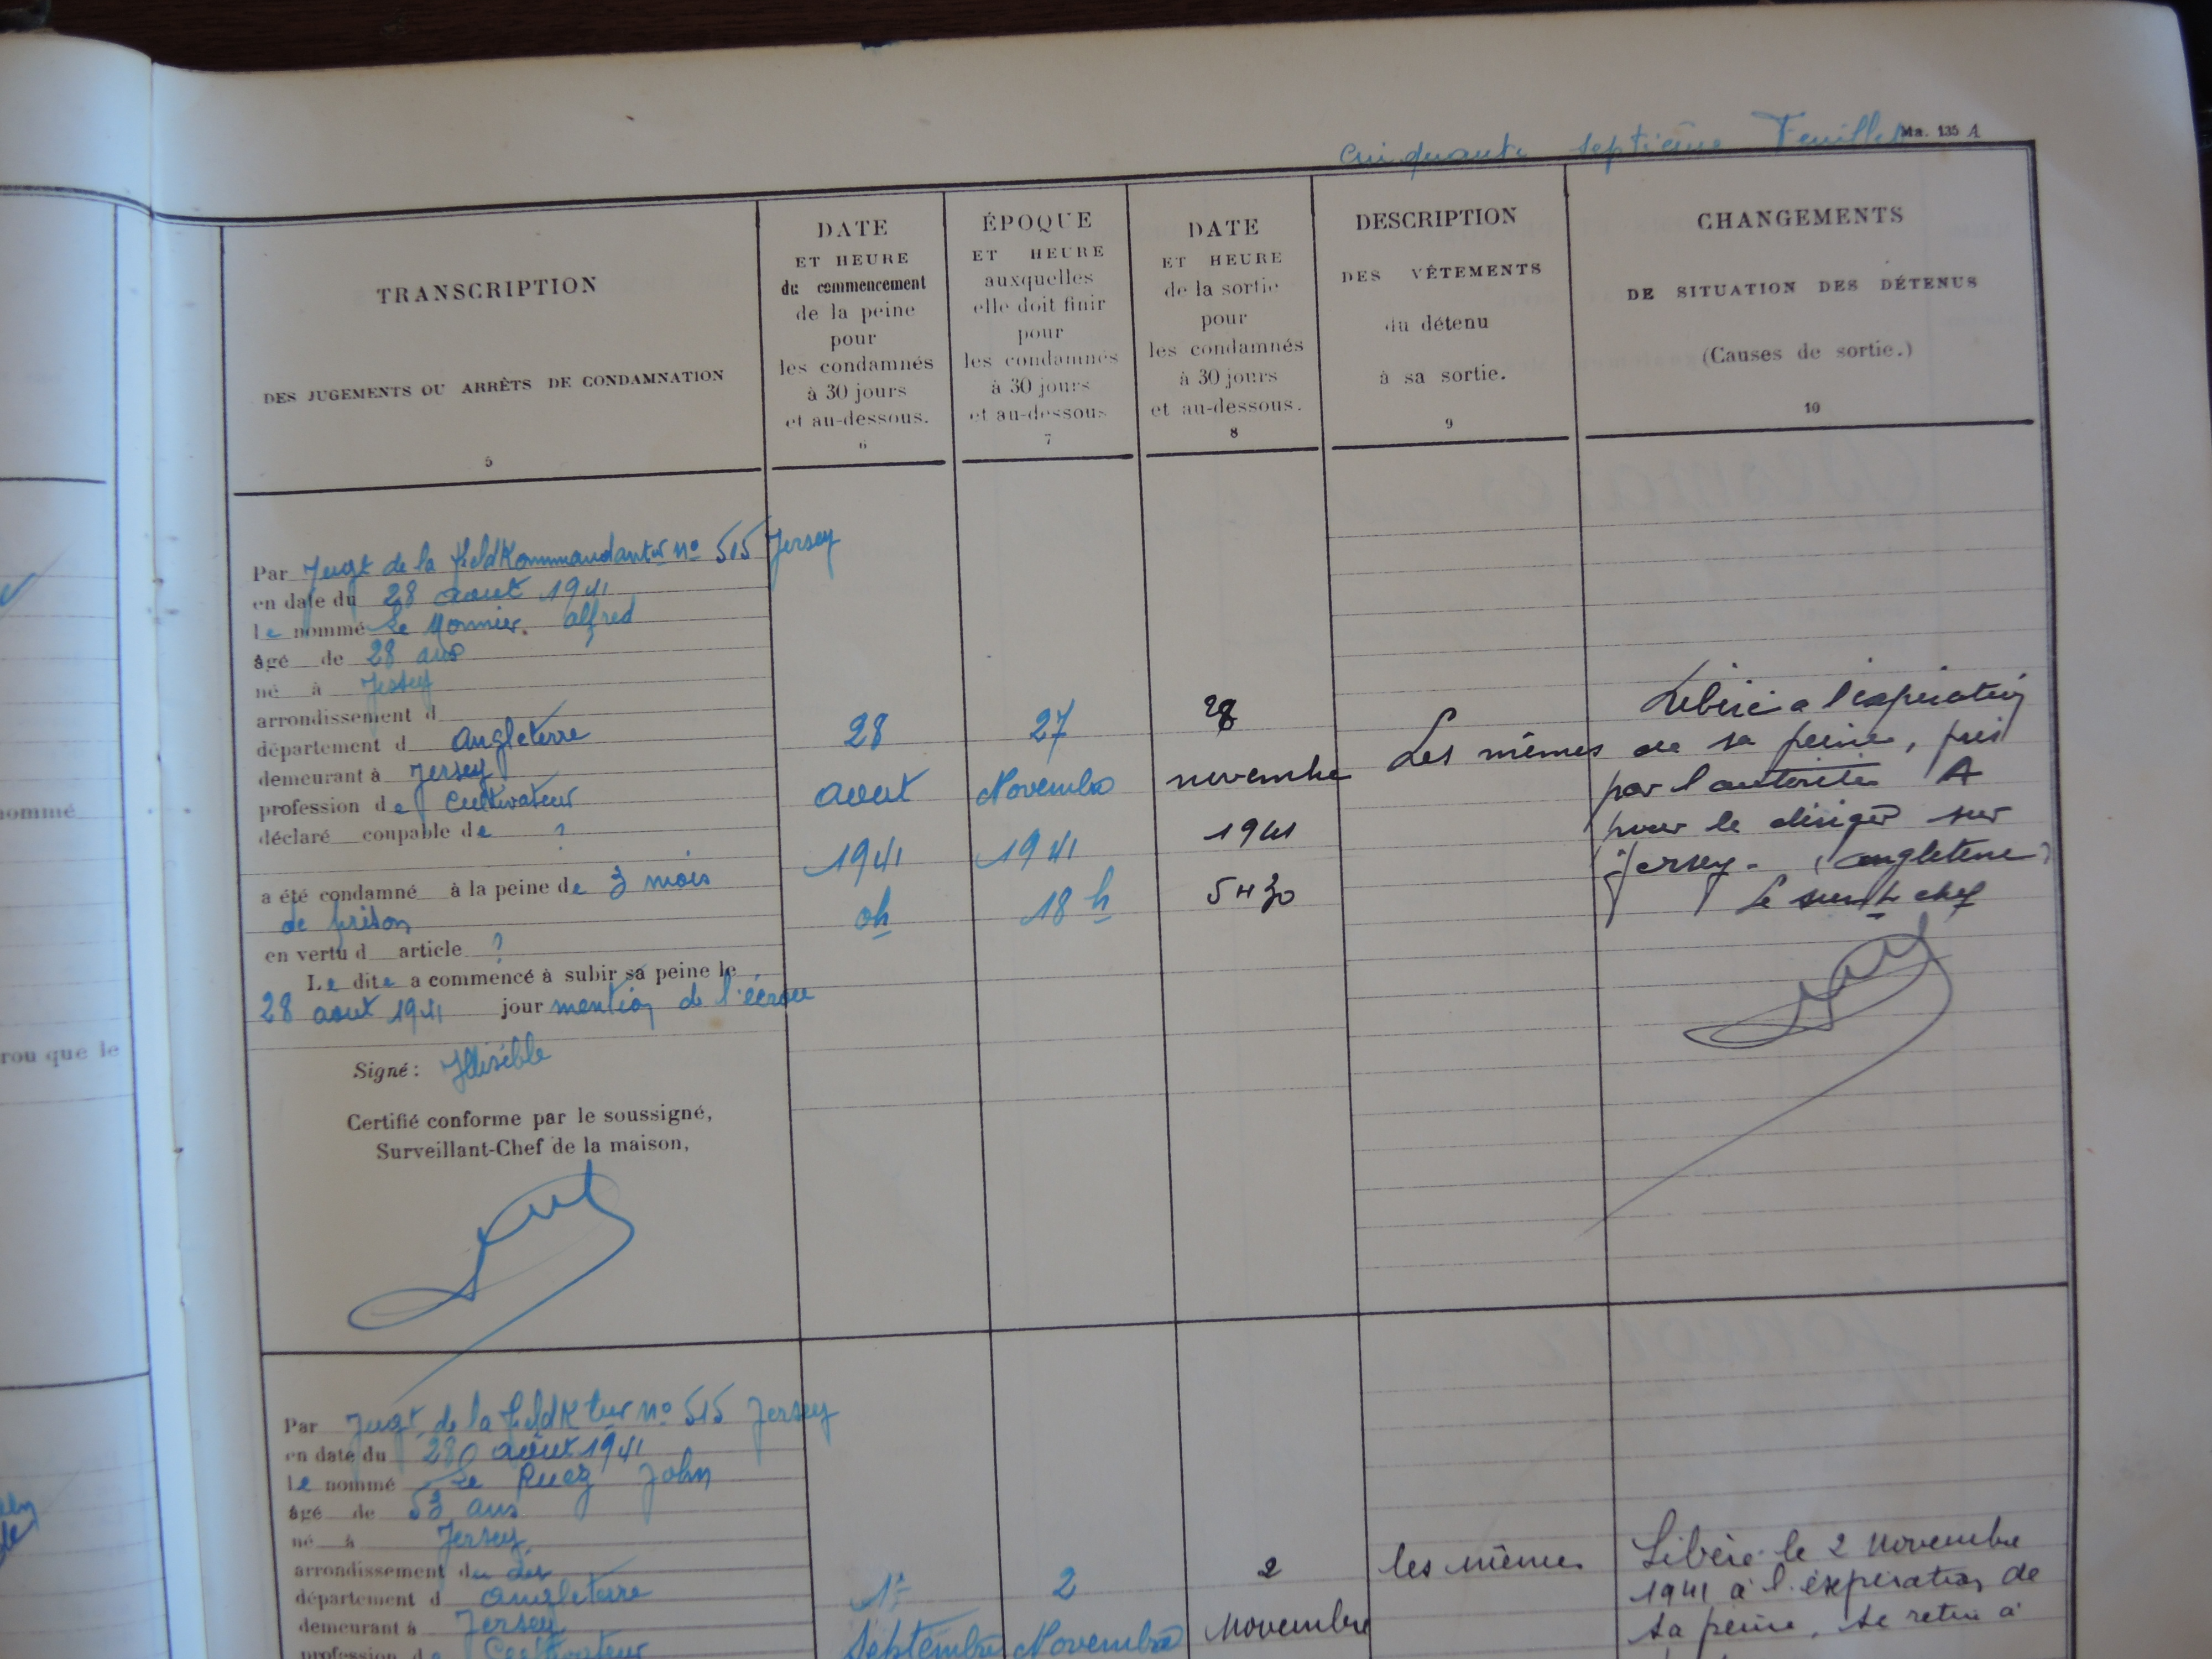 cinquante septième Feuillet
Ma. 135 A
TRANSCRIPTION
DES JUGEMENTS OU ARRÊTS DE CONDAMNATION
5
DATE
ET HEURE
du commencement
de la peine
pour
les condamnés
à 30 jours
et au-dessous.
6
ÉPOQUE
ET HEURE
auxquelles
elle doit finir
pour
les condamnés
à 30 jours
et au-dessous
7
DATE
ET HEURE
de la sortie
pour
les condamnés
à 30 jours
et au-dessous.
8
DESCRIPTION
DES VÊTEMENTS
du détenu
à sa sortie.
9
CHANGEMENTS
DE SITUATION DES DÉTENUS
(Causes de sortie.)
10
Par Jugt de la FeldKommandantur no 515 Jersey
en date du 28 aout 1941
le nommé Le Monnier. alfred
âgé de 28 ans
né à Jersey
arrondissement d
département d Angleterre
demeurant à Jersey
profession de Cultivateur
déclaré coupable de ?
a été condamné à la peine de 3 mois
de prison
en vertu d article ?
Le dite a commencé à subir sa peine le
28 aout 1941 jour mention de l'écrou
Signé : Illisible
Certifié conforme par le soussigné,
Surveillant-Chef de la maison,
28
aout
1941
0h
27
Novembre
1941
18 h
28
novembre
1941
5 H 30
Les mêmes
Libéré a l'expiration
de sa peine, pris
par l'autorité A
pour le diriger sur
Jersey - (angleterre)
Le survt chef
nommé
rou que le
Par Jugt de la feldKtur no 515 Jersey
en date du 28 août 1941
le nommé Le Ruez John
âgé de 53 ans
né à Jersey
arrondissement du
département d Angleterre
demeurant à Jersey
profession de Cultivateur
1er
Septembre
2
Novembre
2
Novembre
les mêmes
Libéré le 2 Novembre
1941 à l'expiration de
sa peine, se retire à